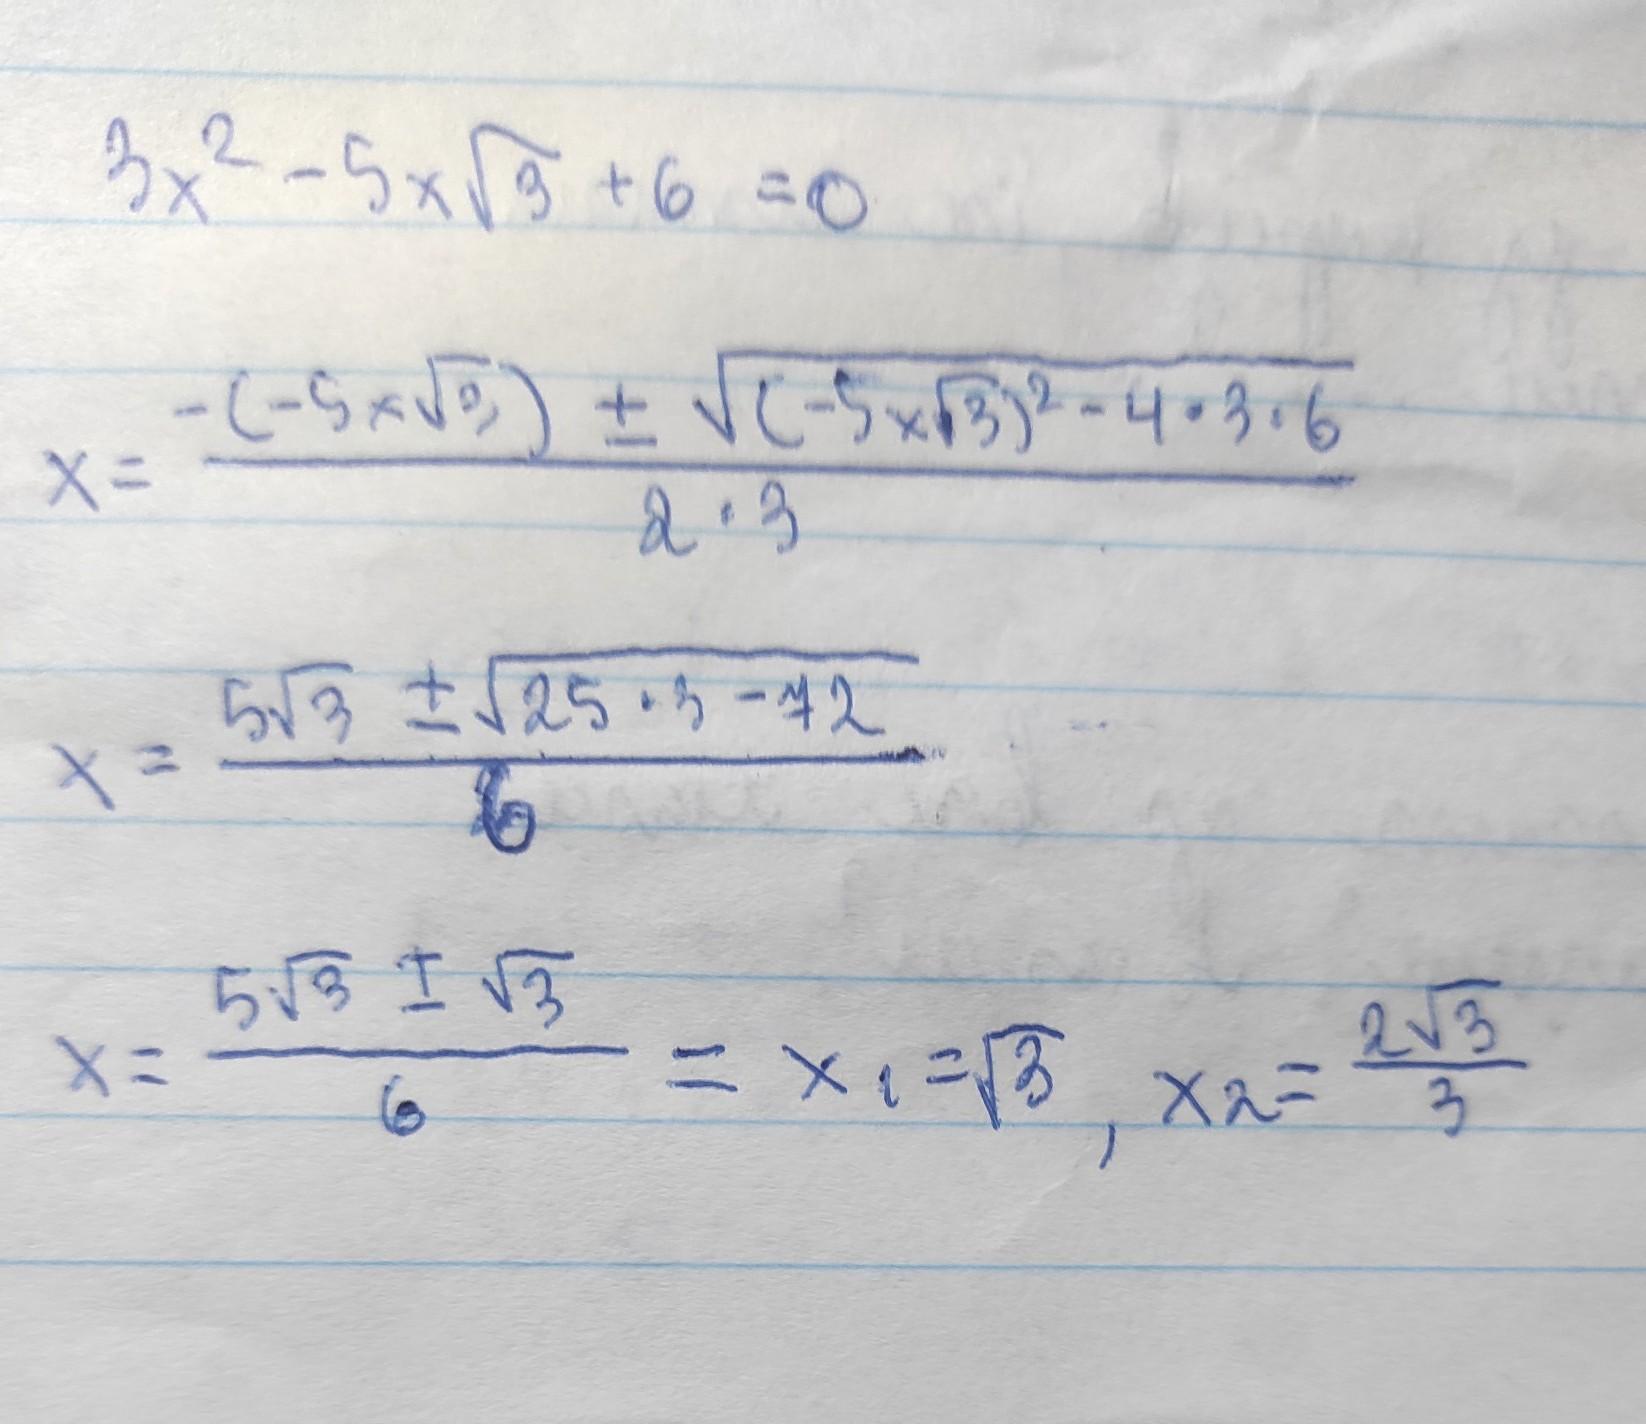 3x² - 5x√3 + 6 = 0
x = (-(-5x√3) ± √((-5x√3)² - 4·3·6)) / (2·3)
x = (5√3 ± √(25·3 - 72)) / 6
x = (5√3 ± √3) / 6 = x₁ = √3, x₂ = 2√3 / 3